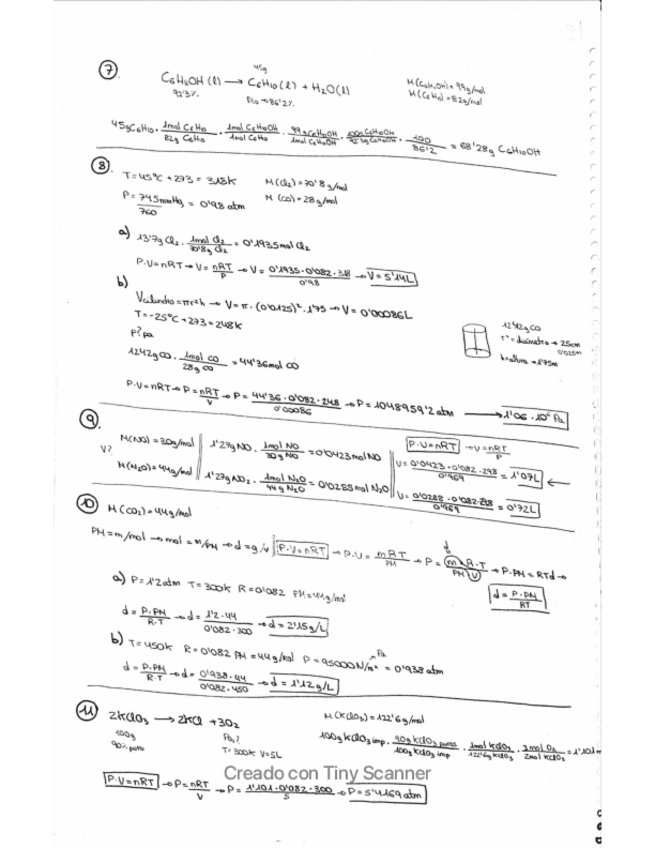 7
45g
C6H11OH (l) → C6H10 (l) + H2O(l)
92'3%
Rto → 86'2%
M(C6H11OH) = 99g/mol
M(C6H10) = 82g/mol
45g C6H10 · 1mol C6H10 / 82g C6H10 · 1mol C6H11OH / 1mol C6H10 · 99g C6H11OH / 1mol C6H11OH · 100g C6H11OH / 92'3g C6H11OH · 100 / 86'2 = 68'28g C6H11OH
8
T = 45ºC + 273 = 318K
M(Cl2) = 70'8 g/mol
P = 745mmHg / 760 = 0'98 atm
M (CO) = 28 g/mol
a) 13'7g Cl2 · 1mol Cl2 / 70'8g Cl2 = 0'1935 mol Cl2
P·V = nRT → V = nRT / P → V = 0'1935 · 0'082 · 318 / 0'98 → V = 5'14L
b)
Vcilindro = πr²h → V = π · (0'0125)² · 1'75 → V = 0'00086L
T = -25ºC + 273 = 248K
P? pa
1242g CO · 1mol CO / 28g CO = 44'36mol CO
1242g CO
r² = diámetro → 25cm
0'025m
h = altura → 1'75m
P·V = nRT → P = nRT / V → P = 44'36 · 0'082 · 248 / 0'00086 → P = 1048959'2 atm → 1'06 · 10⁶ Pa
9
V?
M(NO) = 30g/mol
M(N2O) = 44g/mol
1'27g NO · 1mol NO / 30g NO = 0'0423 mol NO
1'27g NO2 · 1mol N2O / 44g N2O = 0'0288 mol N2O
P·V = nRT → V = nRT / P
V = 0'0423 · 0'082 · 298 / 0'969 = 1'07L ←
V = 0'0288 · 0'082 · 298 / 0'969 = 0'72L
10
M(CO2) = 44g/mol
PM = m/mol → mol = m/PM → d = g/v P·V = nRT → P·V = mRT / PM → P = m·R·T / PM·V → P·PM = RTd →
d
d = P·PM / RT
a) P = 1'2 atm T = 300K R = 0'082 PM = 44g/mol
d = P·PM / R·T → d = 1'2 · 44 / 0'082 · 300 → d = 2'15g/L
b) T = 450K R = 0'082 PM = 44g/mol P = 95000N/m² = 0'938 atm
Pa
d = P·PM / R·T → d = 0'938 · 44 / 0'082 · 450 → d = 1'12g/L
11
2KClO3 → 2KCl + 3O2
100g
90% puro
PO2?
T = 300K V = 5L
M(KClO3) = 122'6g/mol
100g KClO3 imp · 90g KClO3 puros / 100g KClO3 imp · 1mol KClO3 / 122'6g KClO3 · 3mol O2 / 2mol KClO3 = 1'101m
P·V = nRT → P = nRT / V → P = 1'101 · 0'082 · 300 / 5 → P = 5'4169 atm
Creado con Tiny Scanner